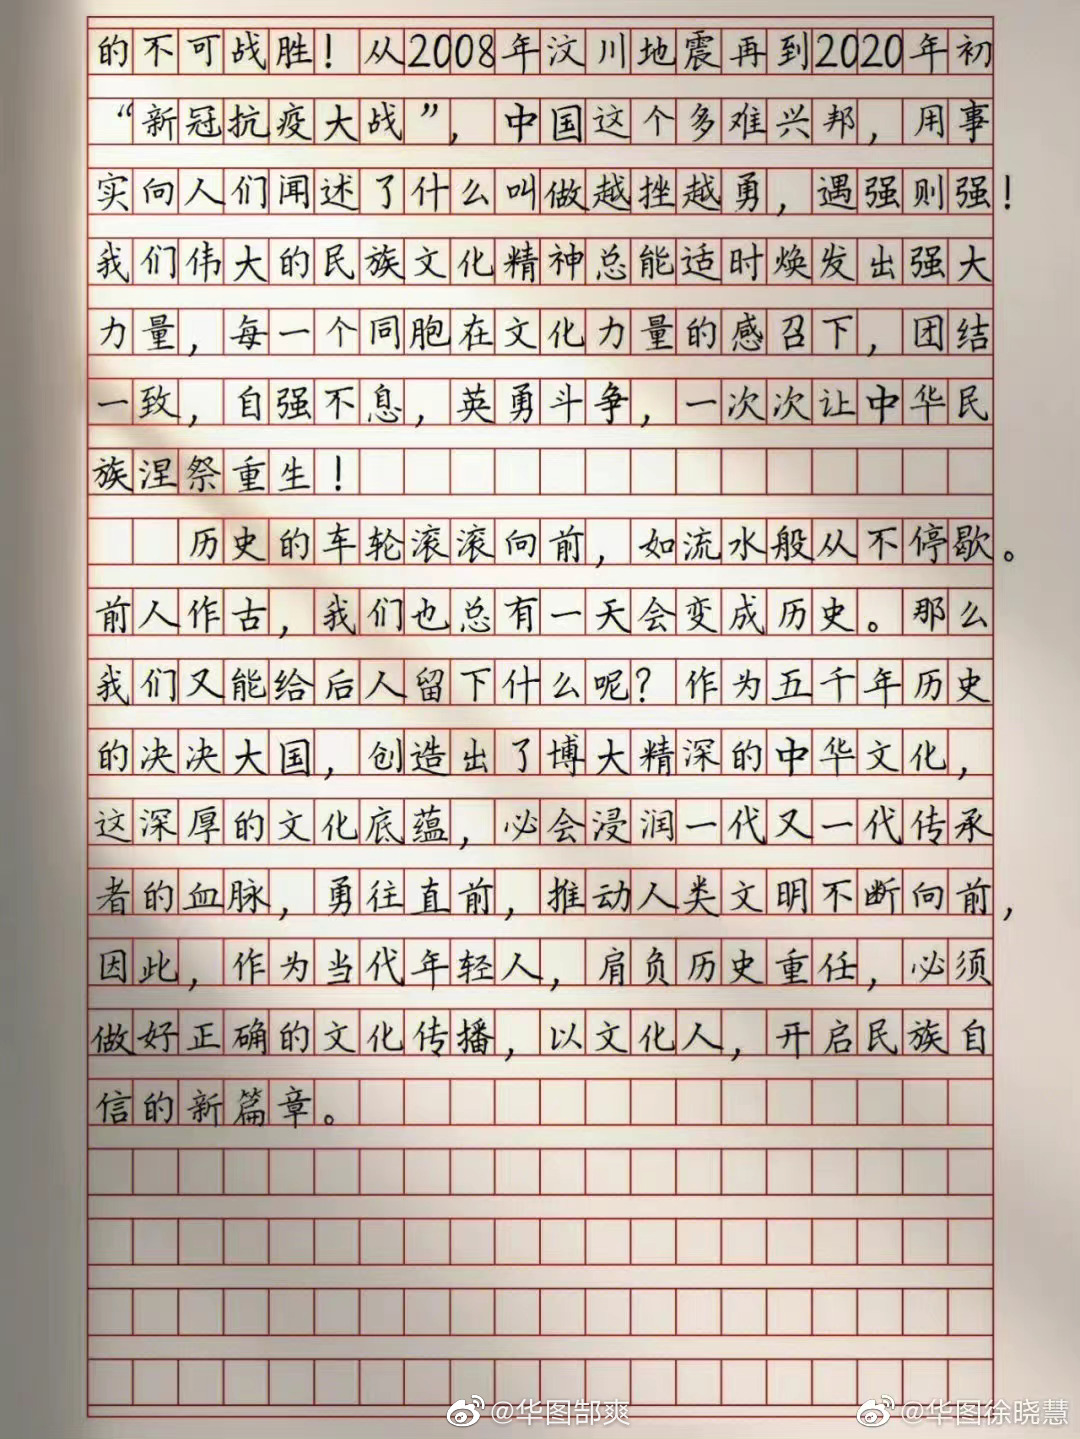 的不可战胜！从2008年汶川地震再到2020年初
“新冠抗疫大战”，中国这个多难兴邦，用事
实向人们闻述了什么叫做越挫越勇，遇强则强！
我们伟大的民族文化精神总能适时焕发出强大
力量，每一个同胞在文化力量的感召下，团结
一致，自强不息，英勇斗争，一次次让中华民
族涅祭重生！
历史的车轮滚滚向前，如流水般从不停歇。
前人作古，我们也总有一天会变成历史。那么
我们又能给后人留下什么呢？作为五千年历史
的决决大国，创造出了博大精深的中华文化，
这深厚的文化底蕴，必会浸润一代又一代传承
者的血脉，勇往直前，推动人类文明不断向前，
因此，作为当代年轻人，肩负历史重任，必须
做好正确的文化传播，以文化人，开启民族自
信的新篇章。
@华图郜爽
@华图徐晓慧